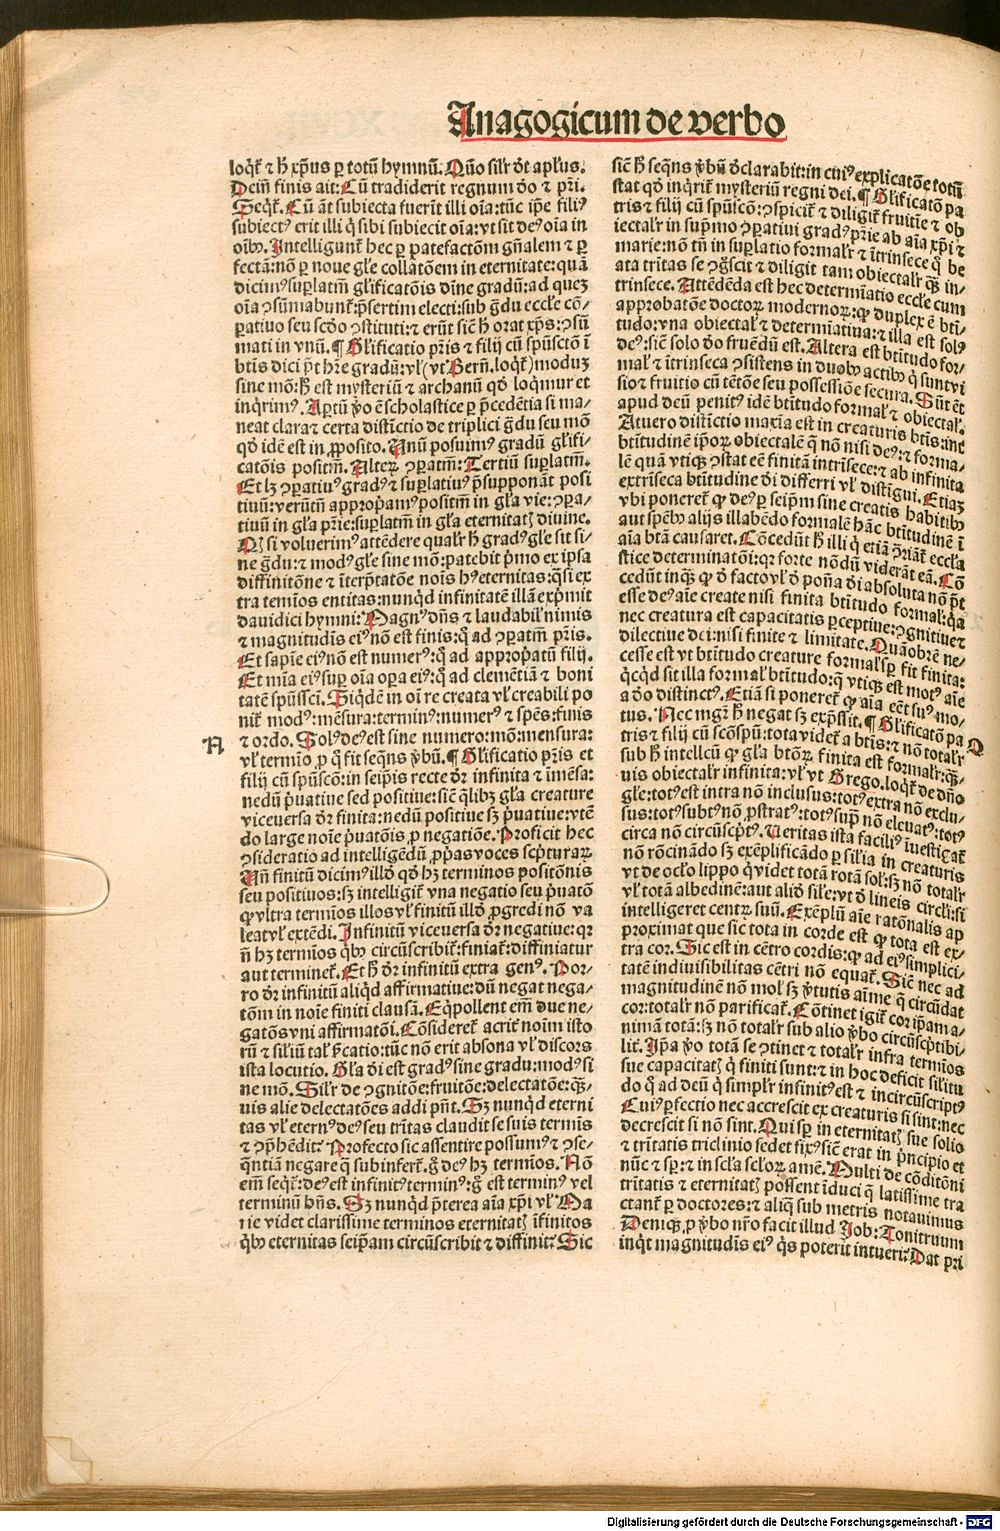 Anagogicum de verbo
loqͥt̄ ⁊ h̄ xp̄us ꝑ totū hymnū. Qūo silr̄ dt̄ apl̄us.
Dein̄ finis ait: Cū tradiderit regnum dō ⁊ pr̄i.
Seqͥt̄. Cū āt subiecta fuerīt illi oīa: tūc ip̄e filiꝰ
subiectꝰ erit illi q̇ sibi subiecit oīa: vt sit deꝰ oīa in
oībꝰ. Intelligunt̄ hec ꝑ patefactōm gn̄alem ⁊ ꝑ
fectā: nō ꝑ noue gl̄e collatōem in eternitate: quā
dicimꝰ suꝑlatm̄ gl̄ificatōis dīne gradū: ad quez
oīa ꝯsūmabunt̄: p̄sertim electi: sub g̊du eccl̄e cō-
ꝑatiuo seu scd̄o ꝯstituti: ⁊ erūt sic̄ h̄ orat xp̄s: ꝯsū
mati in vnū. ¶ Gl̄ificatio pr̄is ⁊ filij cū sp̄usctō ī
btīs dici p̄t hr̄e gradū: vl̄ (vt Bern̄. loqͥt̄) moduʒ
sine mō: h̄ est mysteriū ⁊ archanū qd̄ loqͥmur et
inqͥrimꝰ. Aꝑtū v̄o ē scholastice ꝑ p̄cedētia si ma-
neat clara ⁊ certa distīctio de triplici g̊du seu mō
qd̄ idē est in ꝓposito. Unū posuimꝰ gradū gl̄ifi-
catōis positm̄. Alteꝝ ꝯꝑatm̄: Tertiū suꝑlatm̄.
Et lʒ ꝯꝑatiuꝰ gradꝰ ⁊ suꝑlatiuꝰ p̄supponāt posi
tiuū: verūtn̄ appropͥamꝰ positm̄ in gl̄a vie: ꝯꝑa-
tiuū in gl̄a pr̄ie: suꝑlatm̄ in gl̄a eternitatꝭ diuine.
Qd̄ si voluerimꝰ attēdere qualr̄ h̄ gradꝰ gl̄e sit si-
ne g̊du: ⁊ modꝰ gl̄e sine mō: patebit p̄mo ex ipsa
diffinitōne ⁊ īterp̄tatōe noīs hꝰ eternitas: q̄si ex
tra termīos entitas: nunqͥd infinitatē illā exp̄mit
dauidici hymni: Magnꝰ dn̄s ⁊ laudabil̄ nimis
⁊ magnitudīs eiꝰ nō est finis: qd̄ ad ꝯꝑatm̄ pr̄is.
Et sapīe eiꝰ nō est numerꝰ: qd̄ ad appropͥatū filij.
Et mīa eiꝰ suꝑ oīa oꝑa eiꝰ: qd̄ ad clemētiā ⁊ boni
tatē sp̄ussc̄i. Siqͥdē in oī re creata vl̄ creabili po
nit̄ modꝰ: mēsura: terminꝰ: numerꝰ ⁊ sp̄es: finis
N
⁊ ordo. Solꝰ deꝰ est sine numero: mō: mensura:
vl̄ termīo ꝓ q̇ fit seqn̄s v̄bū. ¶ Gl̄ificatio pr̄is et
filij cū sp̄uscō: in seip̄is recte dr̄ infinita ⁊ imēsa:
nedū p̄uatiue sed positiue: sic̄ ql̄ibʒ gl̄a creature
viceversa dr̄ finita: nedū positiue sʒ p̄uatiue: vtē
do large noīe p̄uatōis ꝓ negatiōe. Proficit hec
ꝯsideratio ad intelligēdū ꝓpͥas voces scp̄turaꝝ
Un̄ finitū dicimꝰ illd̄ qd̄ hʒ terminos positōnis
seu positiuos: sʒ intelligit̄ vna negatio seu p̄uatō
ꝙ vltra termīos illos vl̄ finitū illd̄ ꝓgredi nō va
leat vl̄ extēdi. Infinitū viceversa dr̄ negatiue: qꝛ
n̄ hʒ termīos qͥbꝰ circūscribit̄: finiat̄: diffiniatur
aut terminet̄. Et h̄ dr̄ infinitū extra genꝰ. Por-
ro dr̄ infinitū aliqͥd affirmatiue: dū negat nega-
tōm in noīe finiti clausā. Eqͥpollent em̄ due ne-
gatōes vni affirmatōi. Cōsideret̄ acrit̄ noīm isto
rū ⁊ siliū tal̄ p̄catio: tūc nō erit absona vl̄ discors
ista locutio. Gl̄a di est gradꝰ sine gradu: modꝰ si
ne mō. Silr̄ de ꝯgnitōe: fruitōe: delectatōe: qͣʒ-
uis alie delectatōes addi pn̄t. Sʒ nunqͥd eterni
tas vl̄ eternꝰ deꝰ seu trītas claudit se suis termīs
⁊ ꝯp̄hēdit: Profecto sic assentire possumꝰ ⁊ ꝯse-
qͥntiā negare q̄ subinfert̄. g̊ deꝰ hʒ termīos. Nō
em̄ seqͥt̄: deꝰ est infinitꝰ terminꝰ: g̊ est terminꝰ vel
terminū hn̄s. Sʒ nunqͥd p̄terea aīa xp̄i vl̄ Ma
rie videt clarissime terminos eternitatꝭ īfinitos
qͥbꝰ eternitas seip̄am circūscribit ⁊ diffinit: Sic
sic̄ h̄ seqn̄s v̄bū d̄clarabit: in cuiꝰ explicatōe totū
stat qd̄ inqͥrit̄ mysteriū regni dei. ¶ Gl̄ificatō pa
tris ⁊ filij cū sp̄uscō: ꝯspicit̄ ⁊ diligit̄ fruitīe ⁊ ob
iectalr̄ in suꝑmo ꝯꝑatiui gradꝰ pr̄ie ab aīa xp̄i ⁊
marie: nō tn̄ in suꝑlatio formalr̄ ⁊ ītrinsece q̇ be
ata trītas se ꝯgͦscit ⁊ diligit tam obiectalr̄ qͣʒ in-
trinsece. Attēdēda est hec determīatio eccl̄e cum
approbatōe doctoꝝ modernoꝝ: ꝙ duplex ē btī-
tudo: vna obiectal̄ ⁊ determīatiua: ⁊ illa est solꝰ
deꝰ: sic̄ solo dō fruēdū est. Altera est btītudo for-
mal̄ ⁊ ītrinseca ꝯsistens in duobꝰ actibꝰ q̇ sunt vi
sio ⁊ fruitio cū tētōe seu possessiōe secura. Sūt ēt
apud deū penitꝰ idē btītudo formal̄ ⁊ obiectal̄.
At uero distīctio maxīa est in creaturis btīs: inē
btītudinē ip̄oꝝ obiectalē q̄ nō nisi deꝰ: ⁊ forma-
lē quā vtiqʒ ꝯstat eē finitā intrīsece: ⁊ ab infinita
extrīseca btītudine di differri vl̄ distīgui. Etiaʒ
vbi poneret̄ ꝙ deꝰ ꝑ seip̄m sine creatis habitibꝰ
aut sp̄ebꝰ alijs illabēdo formalē hāc btītudinē ī
aīa btā causaret. Cōcedūt h̄ illi q̇ etiā ꝓriāt̄ eccl̄a
stice determinatōi: qꝛ forte nōdū viderāt eā. Cō
cedūt inqʒ ꝙ d̄ facto vl̄ d̄ po̅n̅a di absoluta nō p̄t
esse de aīe create nisi finita btītudo formal̄: qꝛ
nec creatura est capacitatis ꝑceptiue: ꝯgnitiue ⁊
dilectiue dei: nisi finite ⁊ limitate. Quāobrē ne-
cesse est vt btītudo creature formal̄ sꝑ fit finita:
qͥcqͥd sit illa formal̄ btītudo: q̄ vtiqʒ est motꝰ aīe
a dō distinctꝰ. Etiā si poneret̄ ꝙ aīa eēt suꝰ mo-
tus. Nec mgr̄ h̄ negat sʒ exp̄ssit. ¶ Gl̄ificatō pa
Q
tris ⁊ filij cū scōspū: tota videt̄ a btīs: ⁊ nō totalr̄
sub h̄ intellcū ꝙ gl̄a btōꝝ finita est formalr̄: qͣʒ-
uis obiectalr̄ infinita: vl̄ vt Grego. loqͥt̄ de dn̄o
gl̄e: totꝰ est intra nō inclusus: totꝰ extra nō exclu-
sus: totꝰ subtꝰ nō ꝓstratꝰ: totꝰ sup̄ nō eleuatꝰ: totꝰ
circa nō circūscp̄tꝰ. Veritas ista faciliꝰ īuestigat̄
nō rōcinādo sʒ exēplificādo ꝑ sil̄ia in creaturis
vt de oclo̅ lippo q̇ videt totā rotā sol̄: sʒ nō totalr̄
vl̄ totā albedinē: aut alio sil̄e: vt d̄ lineis circl̄i: si
intelligeret centꝝ suū. Exēplū aīe ratōnalis ap
proximat que sic tota in corde est ꝙ tota est ex-
tra cor. Sic est in cētro cordis: ꝙ ad eiꝰ simplici-
tatē indiuisibilitas cētri nō equat̄. Sic̄ nec ad
magnitudinē nō mol̄ sʒ v̄tutis aīme q̄ circūdat
cor: totalr̄ nō parificat̄. Cōtinet igit̄ cor ip̄am a-
nimā totā: sʒ nō totalr̄ sub alio v̄bo circūscp̄tibi-
lit̄. Ip̄a v̄o totā se ꝯtinet ⁊ totalr̄ infra termīos
sue capacitatꝭ q̇ finiti sunt: ⁊ in hoc deficit silītu
do qͣ ad deū q̇ simplr̄ infinitꝰ est ⁊ incircūscriptꝰ
Cuiꝰ ꝑfectio nec accrescit ex creaturis si sint: nec
decrescit si nō sint. Qui sꝑ in eternitatꝭ sue solio
⁊ trītatis triclinio sedet fixꝰ sic̄ erat in p̄ncipio et
nūc ⁊ sꝑ: ⁊ in scl̄a scl̄oꝝ amē. Multi de cōditōni
trītatis ⁊ eternitatꝭ possent īduci q̇ latissime tra
ctant̄ ꝑ doctores: ⁊ aliq̄ sub metris notauimus
Deniqʒ ꝓ v̄bo nr̄o facit illud Job: Tonitruum
inqͥt magnitudīs eiꝰ qͥs poterit intueri: Dat pri
Digitalisierung gefördert durch die Deutsche Forschungsgemeinschaft - DFG